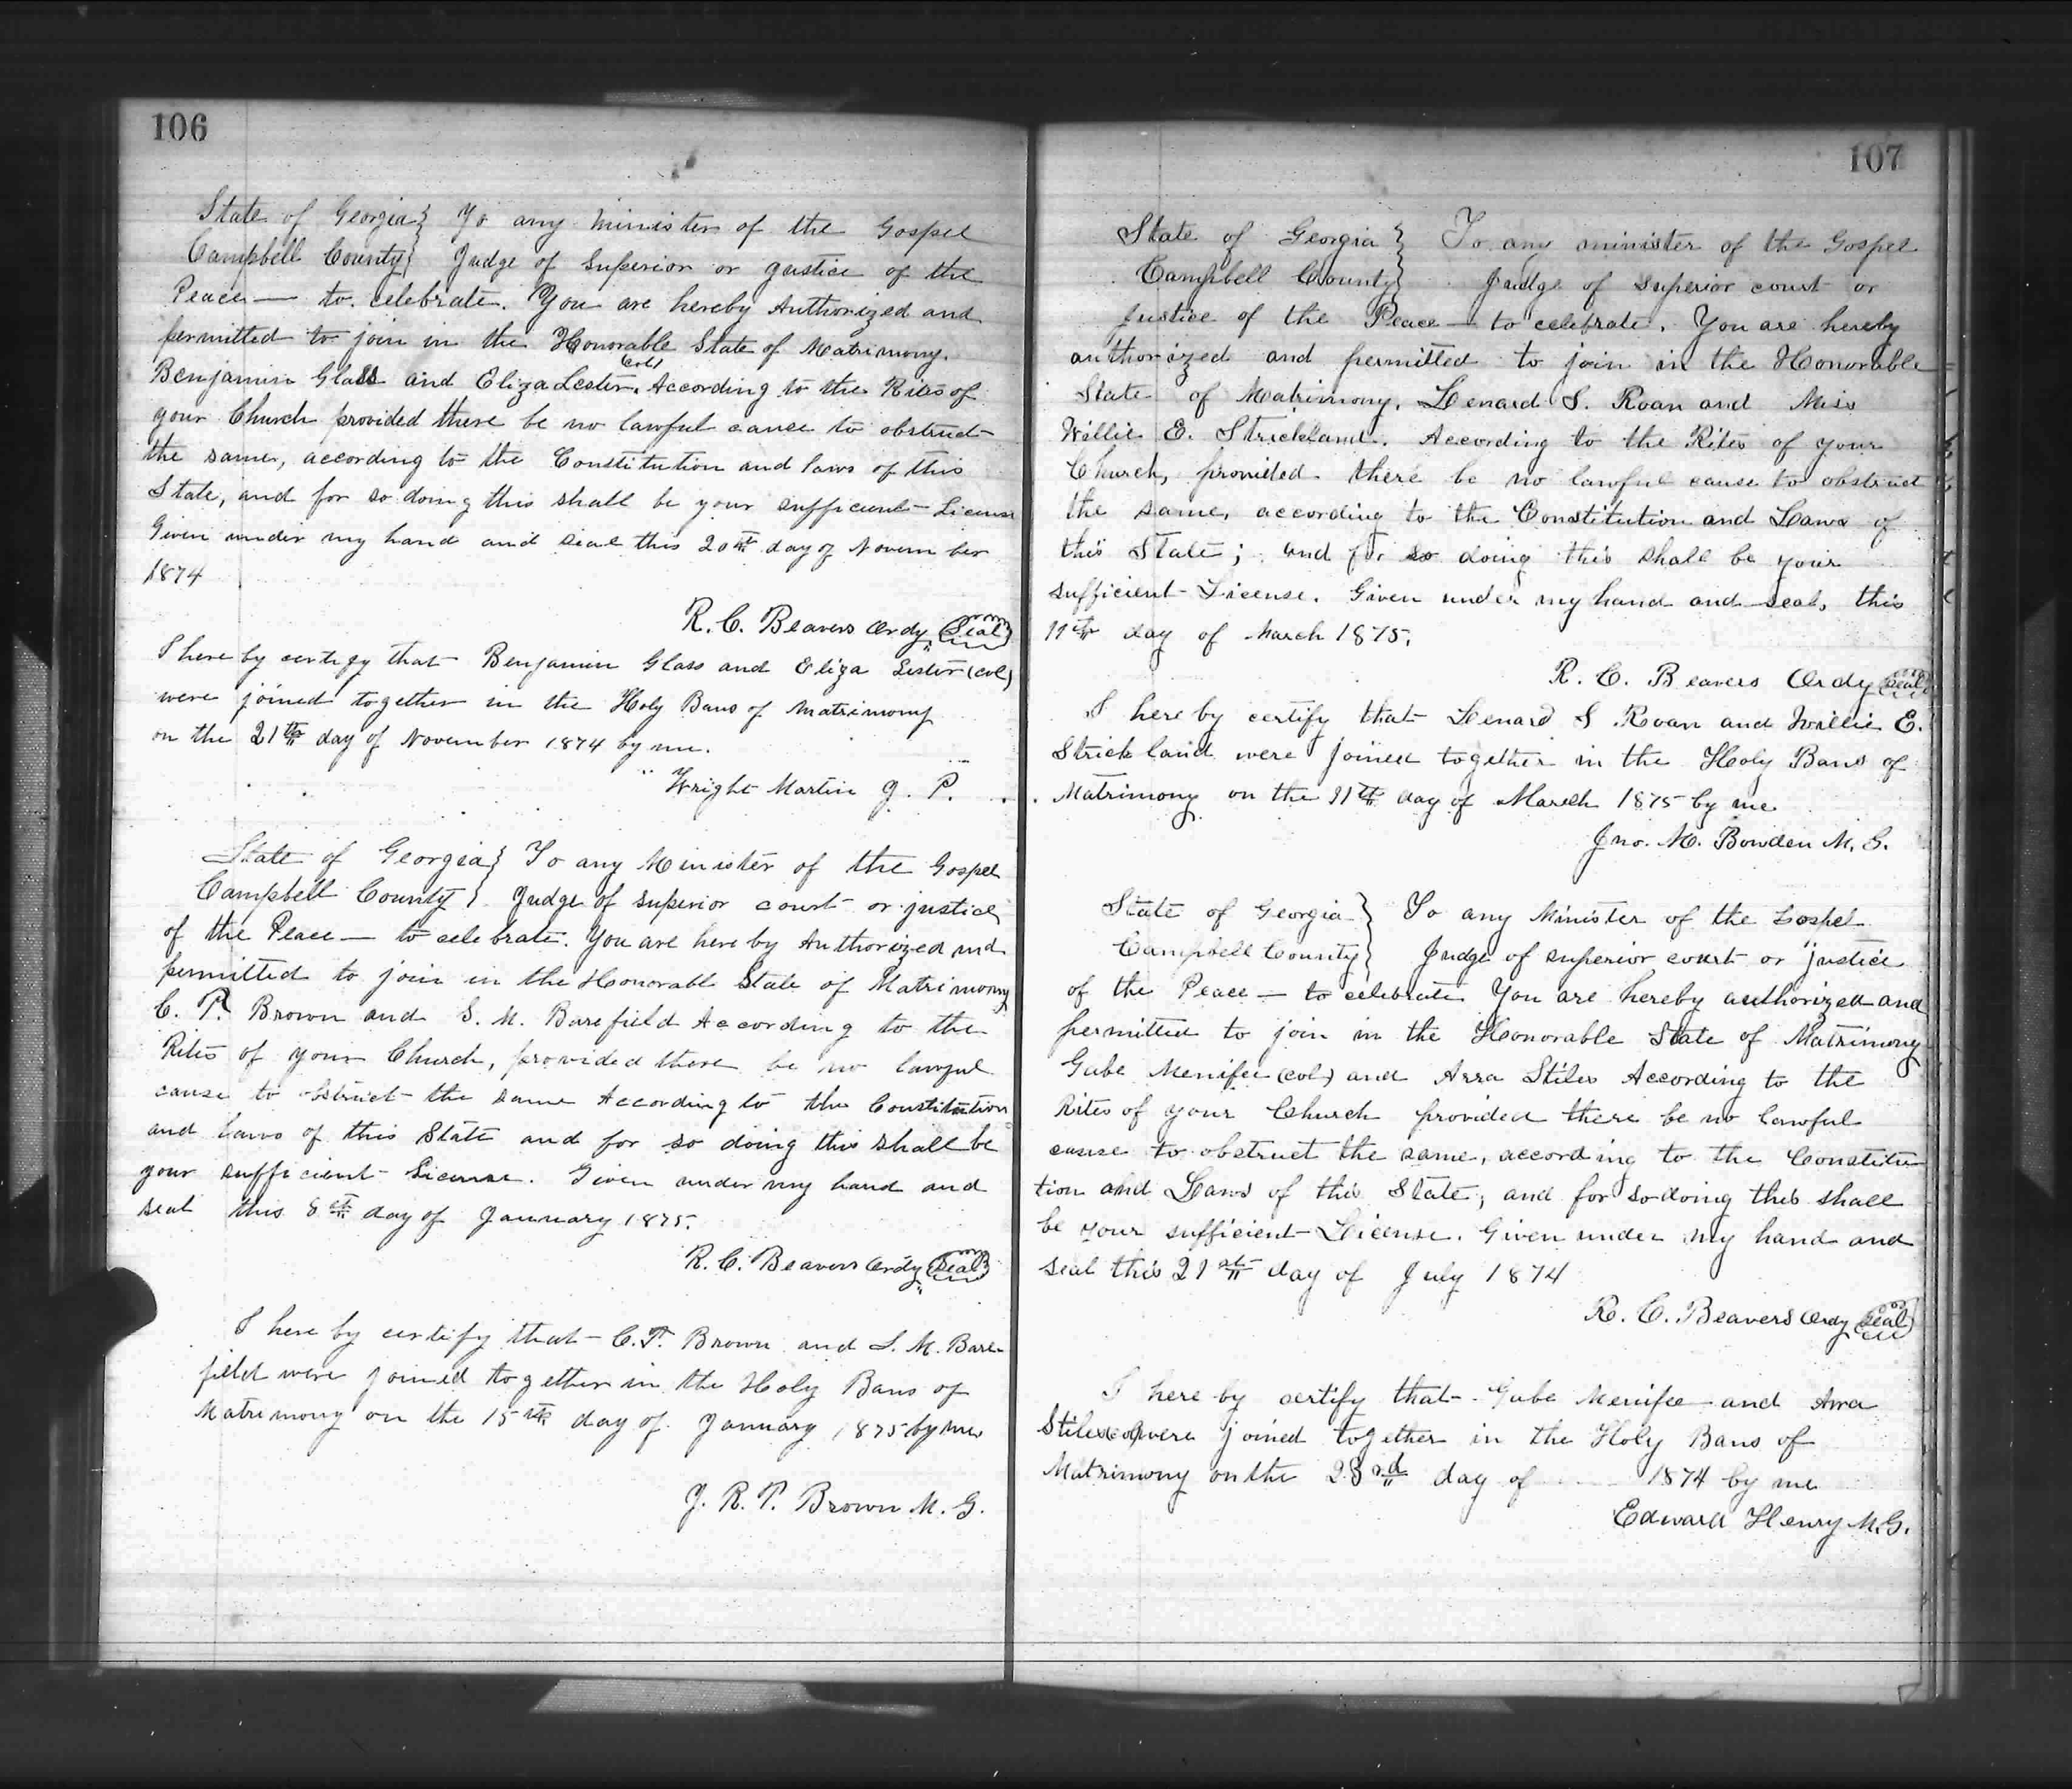 106
State of Georgia } To any minister of the Gospel
Campbell County } Judge of Superior or Justice of the
Peace — to celebrate. You are hereby Authorized and
permitted to join in the Honorable State of Matrimony.
Benjamin Glass and Eliza Lester (col) According to the Rites of
your Church provided there be no lawful cause to obstruct
the same, according to the Constitution and laws of this
State, and for so doing this shall be your sufficient License
Given under my hand and seal this 20th day of November
1874
R. C. Beavers Ordy (Seal)
I here by certify that Benjamin Glass and Eliza Lester (col)
were joined together in the Holy Bans of Matrimony
on the 21th day of November 1874 by me.
Wright Martin J. P.
State of Georgia } To any Minister of the Gospel
Campbell County } Judge of superior court or justice
of the Peace — to celebrate. You are here by Authorized and
permitted to join in the Honorable State of Matrimony
C. P. Brown and S. M. Barefield According to the
Rites of your Church, provided there be no lawful
cause to obstruct the same According to the Constitution
and laws of this State and for so doing this shall be
your sufficient License. Given under my hand and
seal this 8th day of January 1875.
R. C. Beavers Ordy (Seal)
I here by certify that C. P. Brown and S. M. Bare-
field were joined together in the Holy Bans of
Matrimony on the 15th day of January 1875 by me
J. R. P. Brown M. G.
107
State of Georgia } To any minister of the Gospel
Campbell County } Judge of Superior court or
Justice of the Peace — to celebrate. You are hereby
authorized and permitted to join in the Honorable
State of Matrimony, Lenard S. Roan and Miss
Willie E. Strickland. According to the Rites of your
Church, provided there be no lawful cause to obstruct
the same, according to the Constitution and Laws of
this State; and for so doing this shall be your
sufficient License. Given under my hand and seal, this
11th day of March 1875.
R. C. Beavers Ordy (Seal)
I here by certify that Lenard S Roan and Willie E.
Strickland were joined together in the Holy Bans of
Matrimony on the 11th day of March 1875 by me
Jno. M. Bowden M. G.
State of Georgia } To any Minister of the Gospel
Campbell County } Judge of superior court or justice
of the Peace — to celebrate You are hereby authorized and
permitted to join in the Honorable State of Matrimony
Gabe Menifee (col) and Arra Stiles According to the
Rites of your Church provided there be no lawful
cause to obstruct the same, according to the Constitu
tion and Laws of this State, and for so doing this shall
be your sufficient License. Given under my hand and
seal this 21st day of July 1874
R. C. Beavers Ordy (Seal)
I here by certify that Gabe Menifee and Arra
Stiles (col) were joined together in the Holy Bans of
Matrimony on the 23rd day of 1874 by me
Edward Henry M. G.